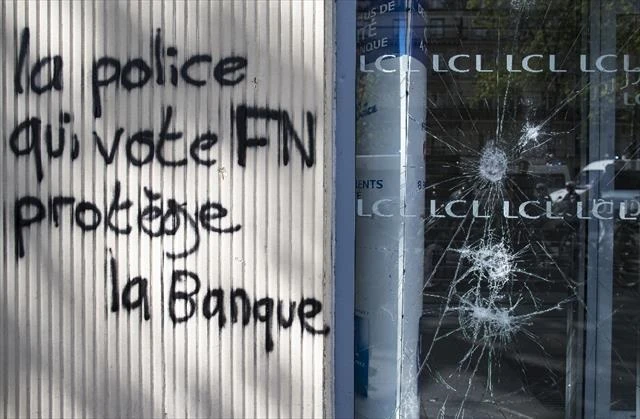 la police
qui vote FN
protège
la Banque
US DE
TÉ
NQUE
LCL LCL LCL LCL
ENTS
LCL LCL LCL LCL